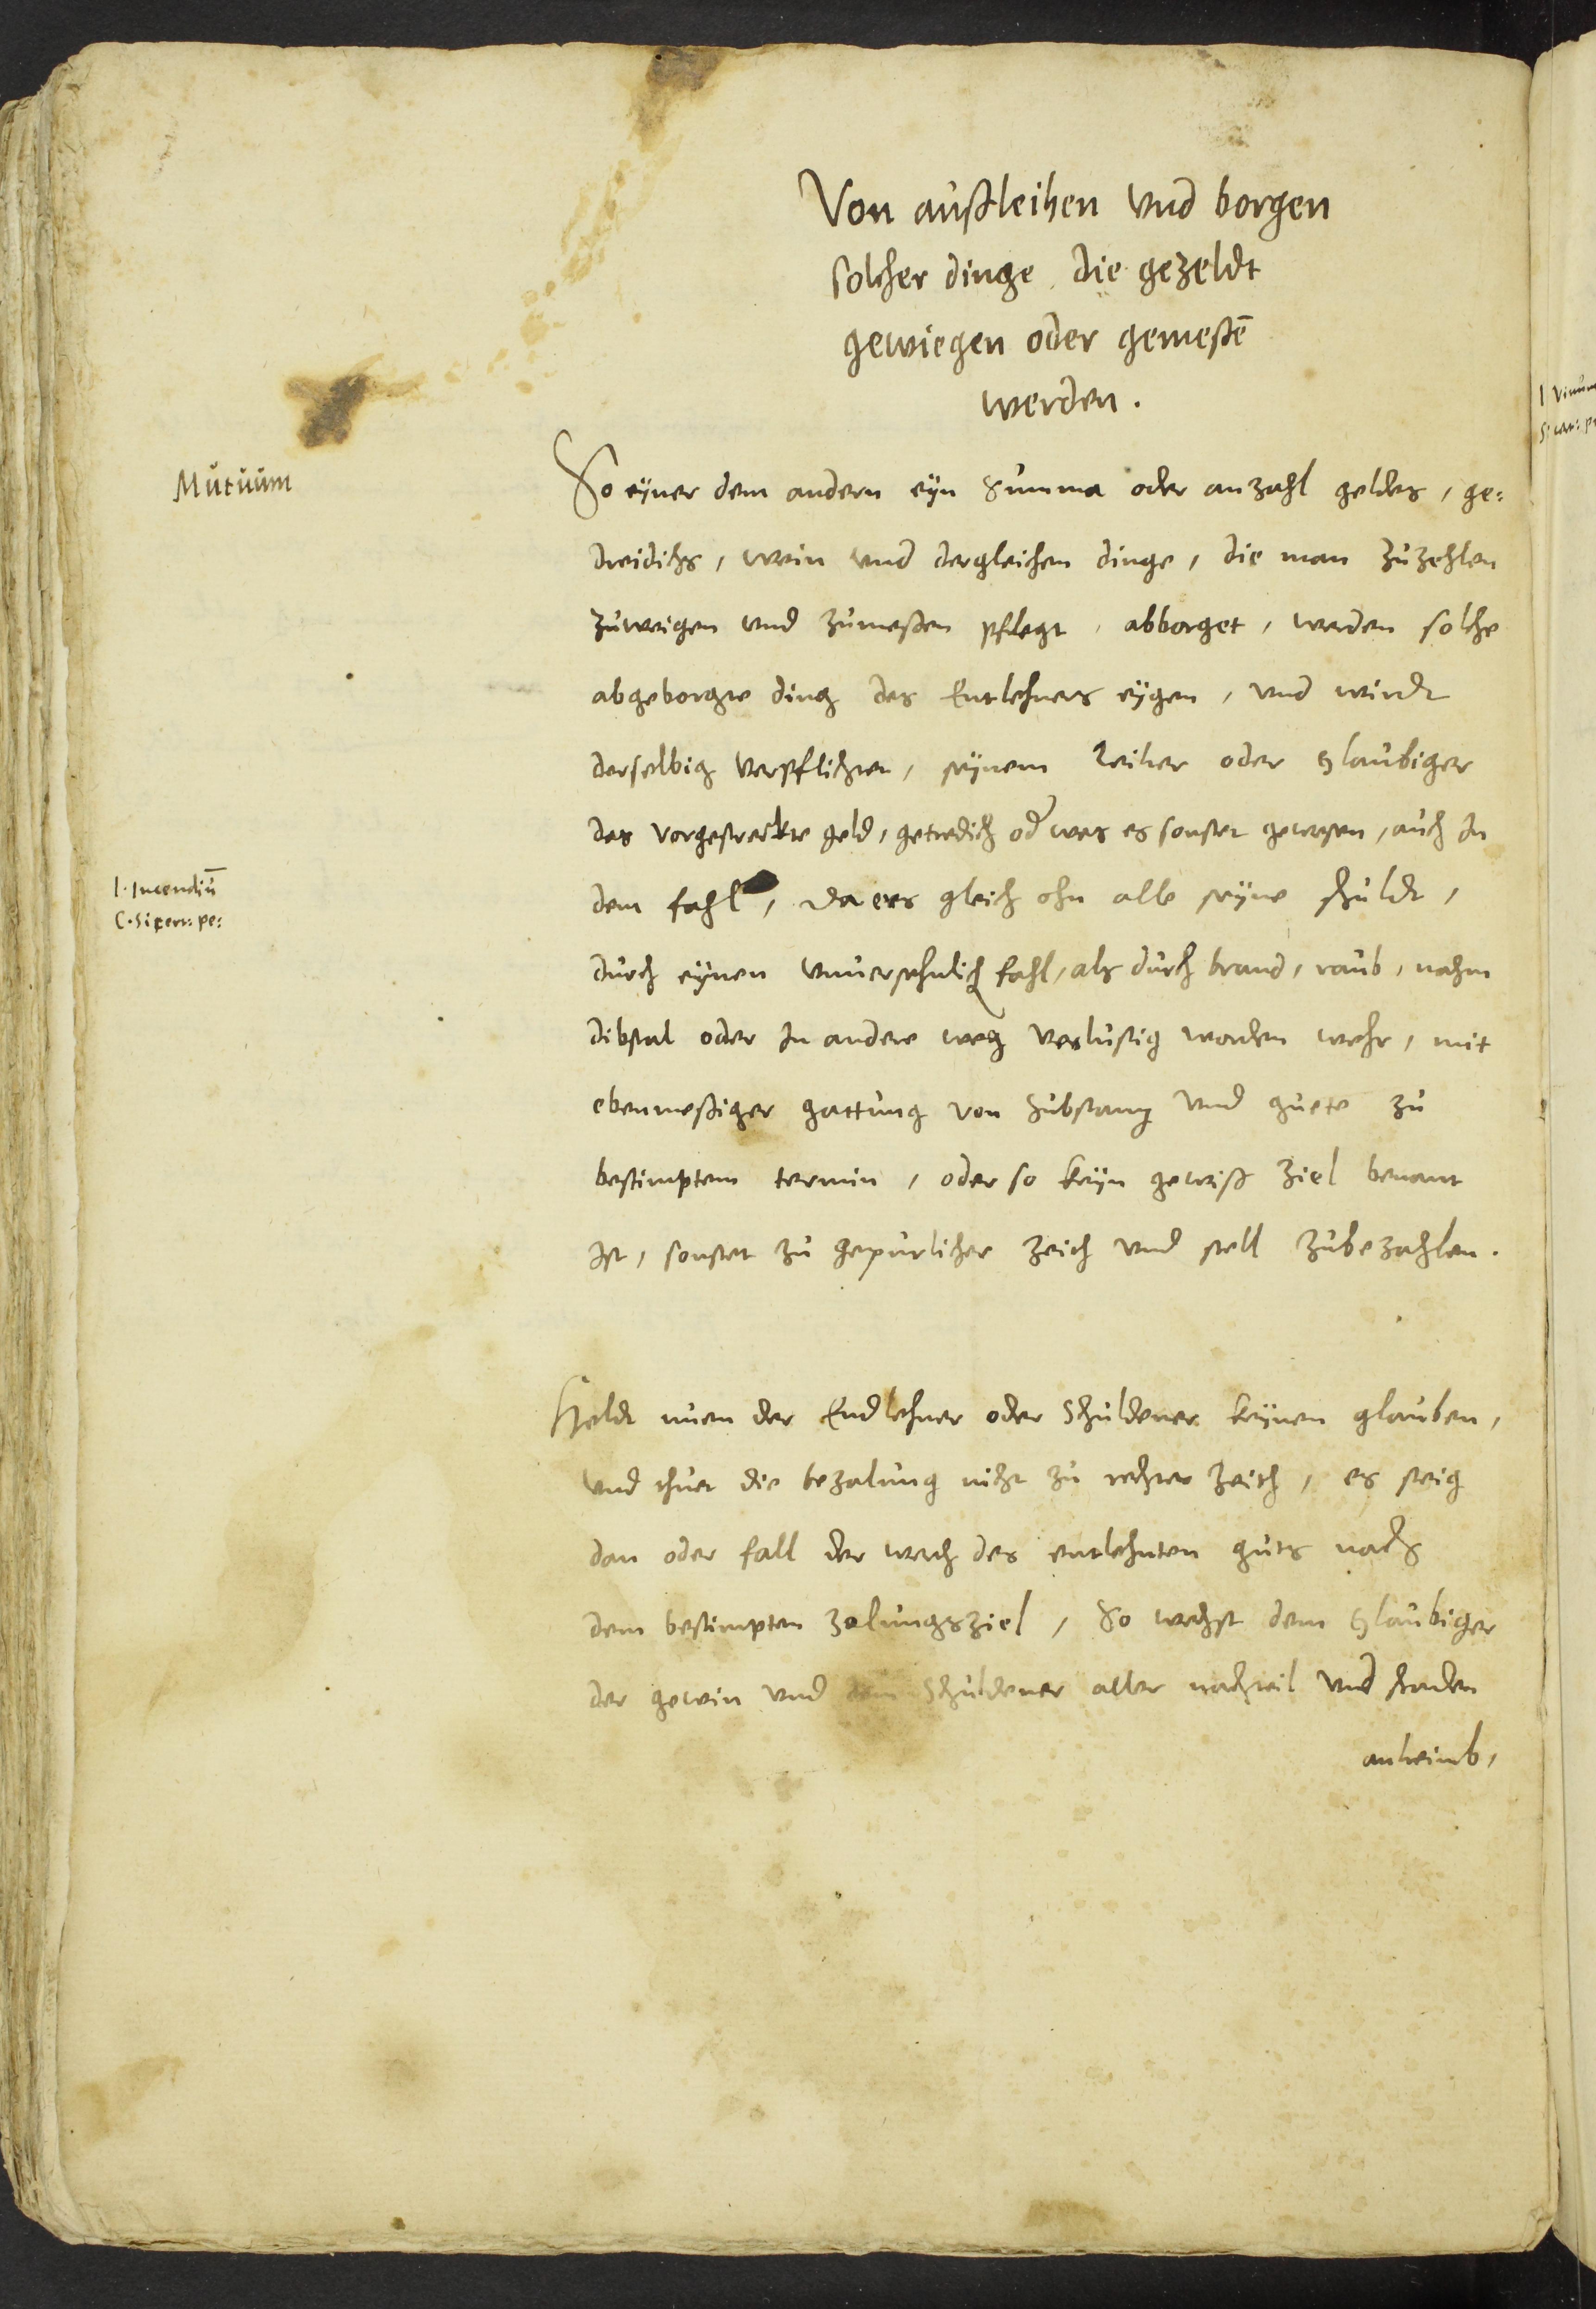 Von außleihen vnd borgen
solcher dinge die gezeldt
gewiegen oder gemeßē
werden.
Mutuum
So eyner dem andern eyn Summa oder anzahl geldes, ge=
dreidichs, wein vnd dergleichen dinge, die man zuzehlen
zuweigen vnd zumeßen pflegt, abborget, werden solche
abgeborgte ding des Entlehners eygen, vnd wirdt
derselbig verpflichtet, seynem Leiher oder Glaubiger
das vorgestreckte geld, getredich od was es sonstet gewesen, auch In
l. Incendiū
C. Si cert: pe:
dem fahl, da ers gleich ohn alle seyne schuldt,
durch eynen vnuersehnlich fahl, als durch brand, raub, nahm
dibstal oder In andere weg verlustig worden wehr, mit
ebenmeßiger gattung von Substantz vnd guete zu
bestimptem termin, oder so keyn gewiß ziel benant
Ist, sonstet zu gepurlicher zeith vnd stell zubezahlen.
Heldt nuen der Endlehner oder Schuldener keynen glauben,
vnd thuet die bezalung nicht zu rechter zeith, es steig
dan oder fall der werth des entlehnten guts nach
dem bestimpten zalungsziel, So wechst dem Glaubiger
der gewin vnd dem Schuldener aller nachteil vnd schaden
anheimb,
l vinum